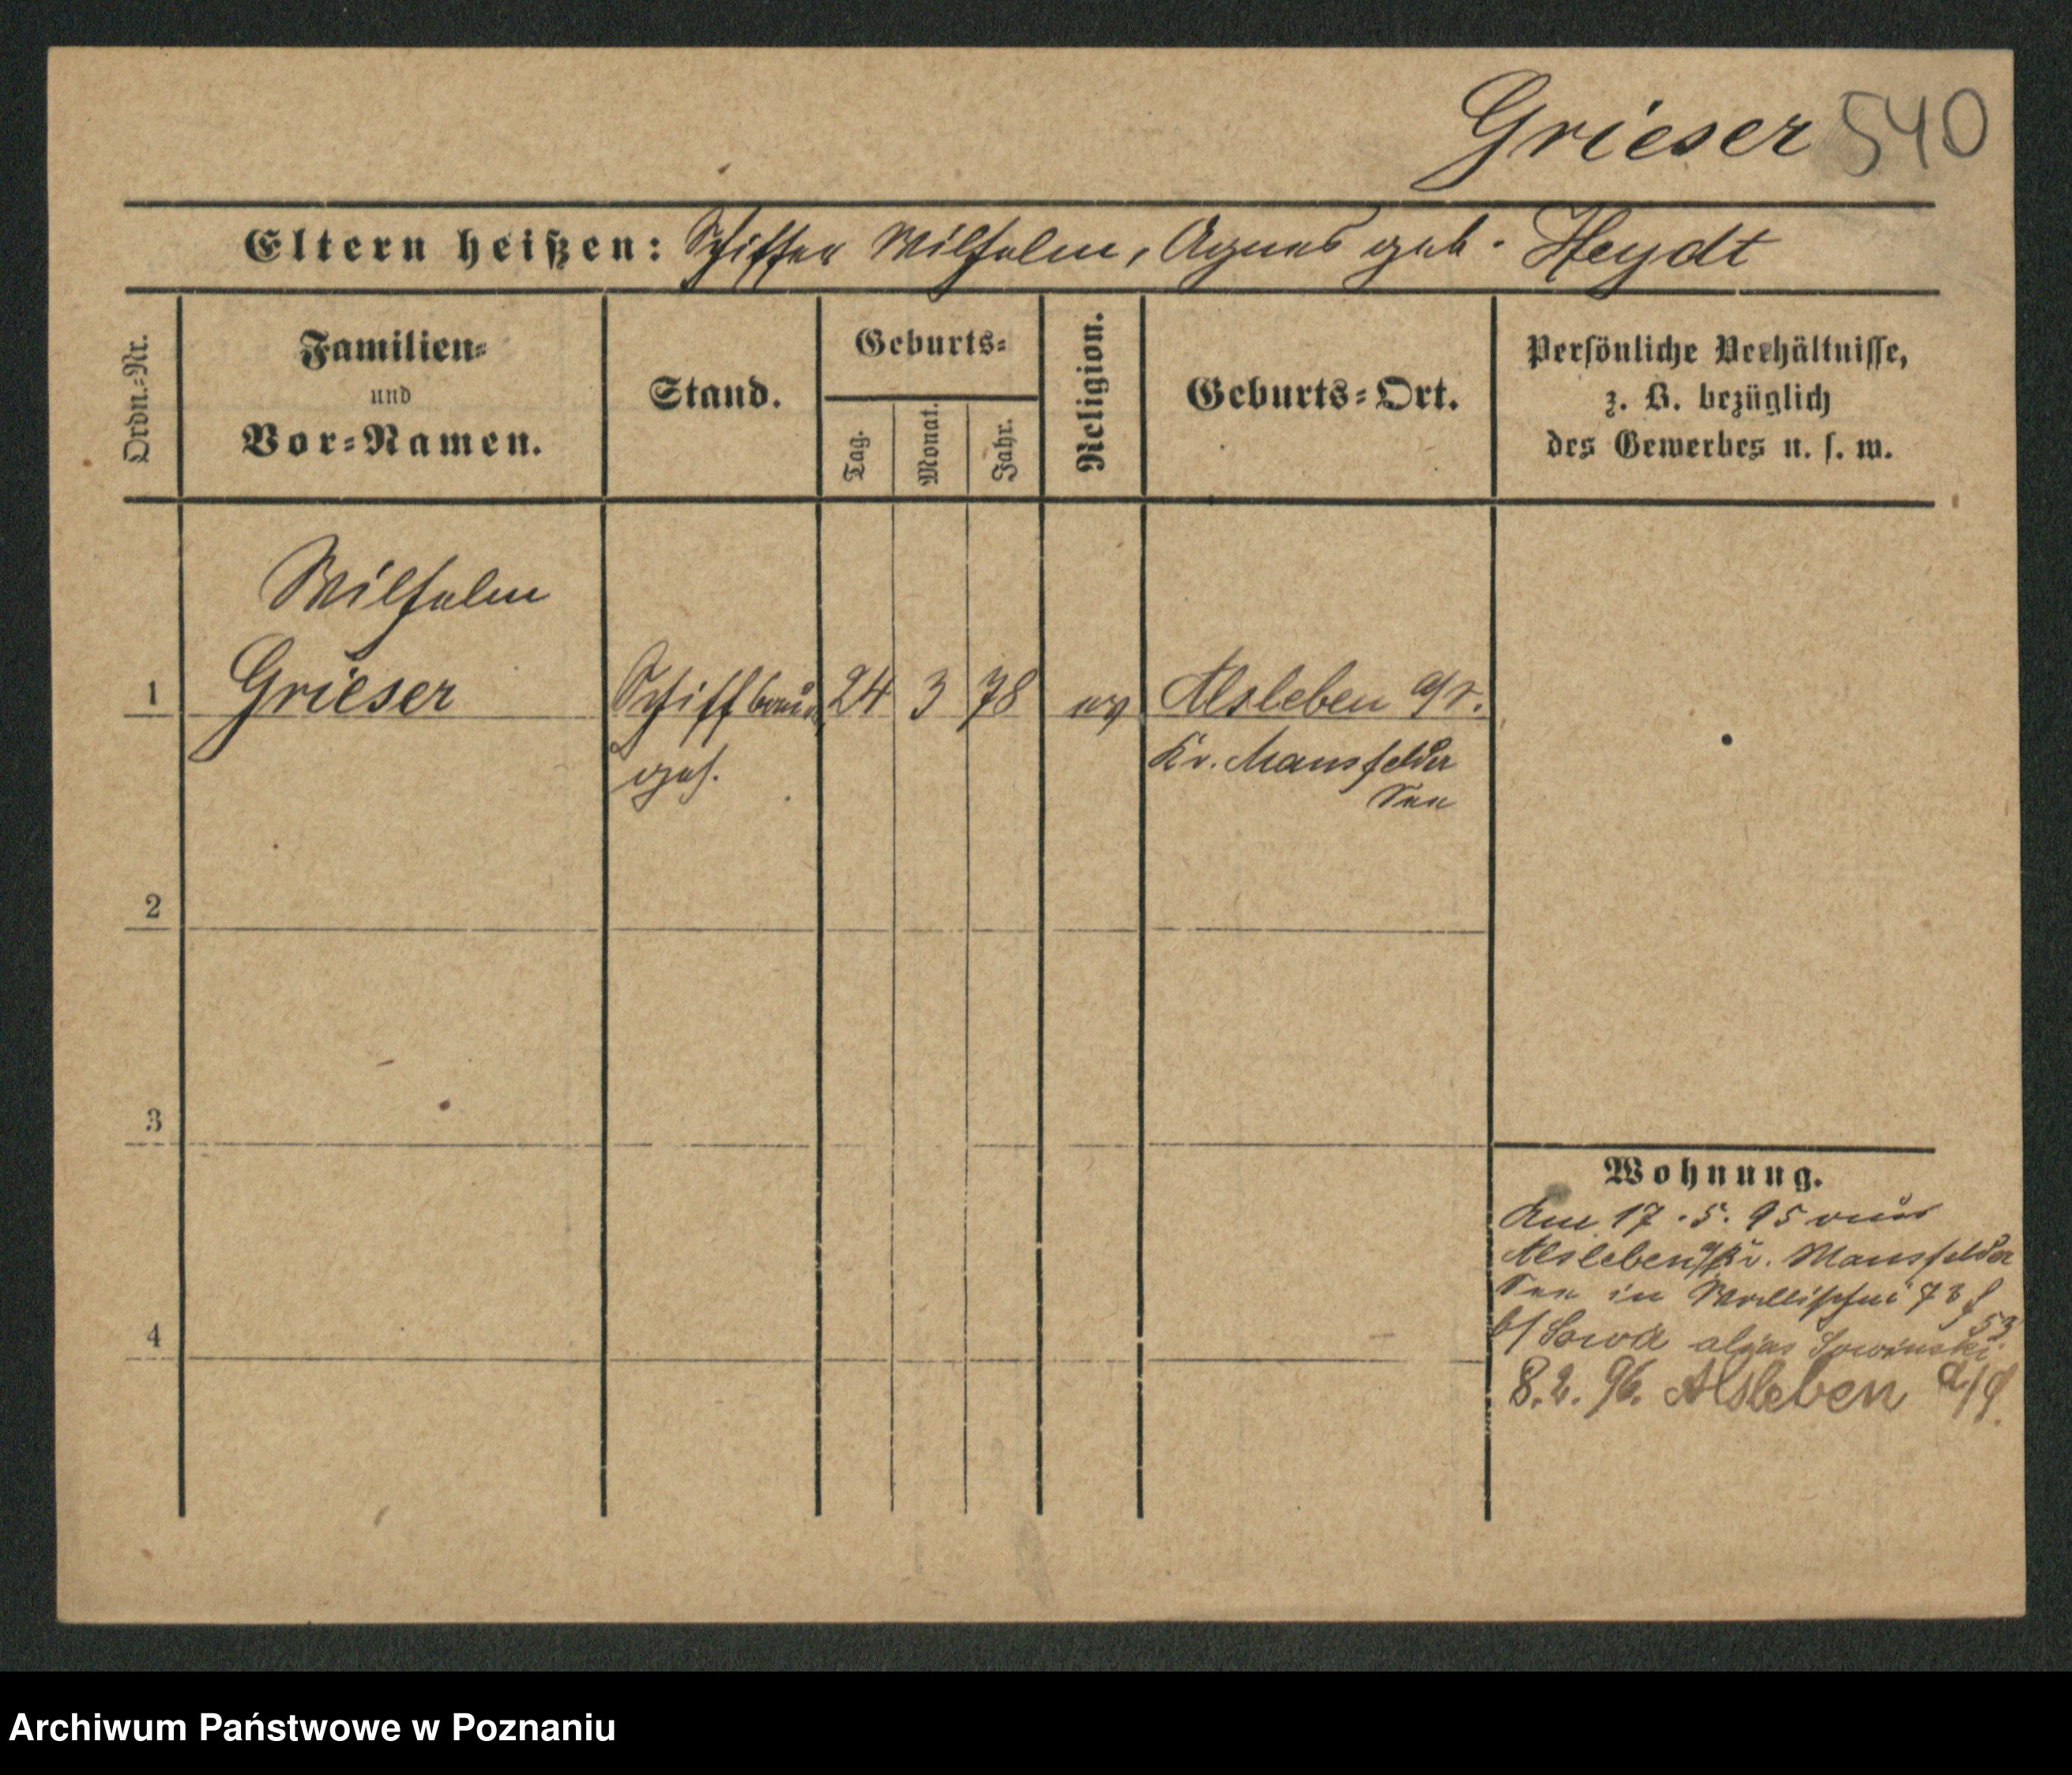 Grieser 540
Eltern heißen: Schiffer Wilhelm, Agnes geb. Heydt
Ordn.=Nr.
Familien=
und
Vor=Namen.
Stand.
Geburts=
Tag.
Monat.
Jahr.
Religion.
Geburts=Ort.
Persönliche Verhältnisse,
z. B. bezüglich
des Gewerbes u. s. w.
Wilhelm
1 Grieser Schiffbauer 24 3 78 ev Alsleben a/S.
ges. Kr. Mansfelder
See
2
3
4
Wohnung.
17.5.95 aus
Alsleben Kr. Mansfelder
See in Wallischei 73
b/ Sowa alias Sowinski
8.2.96. Alsleben a/S.
Archiwum Państwowe w Poznaniu